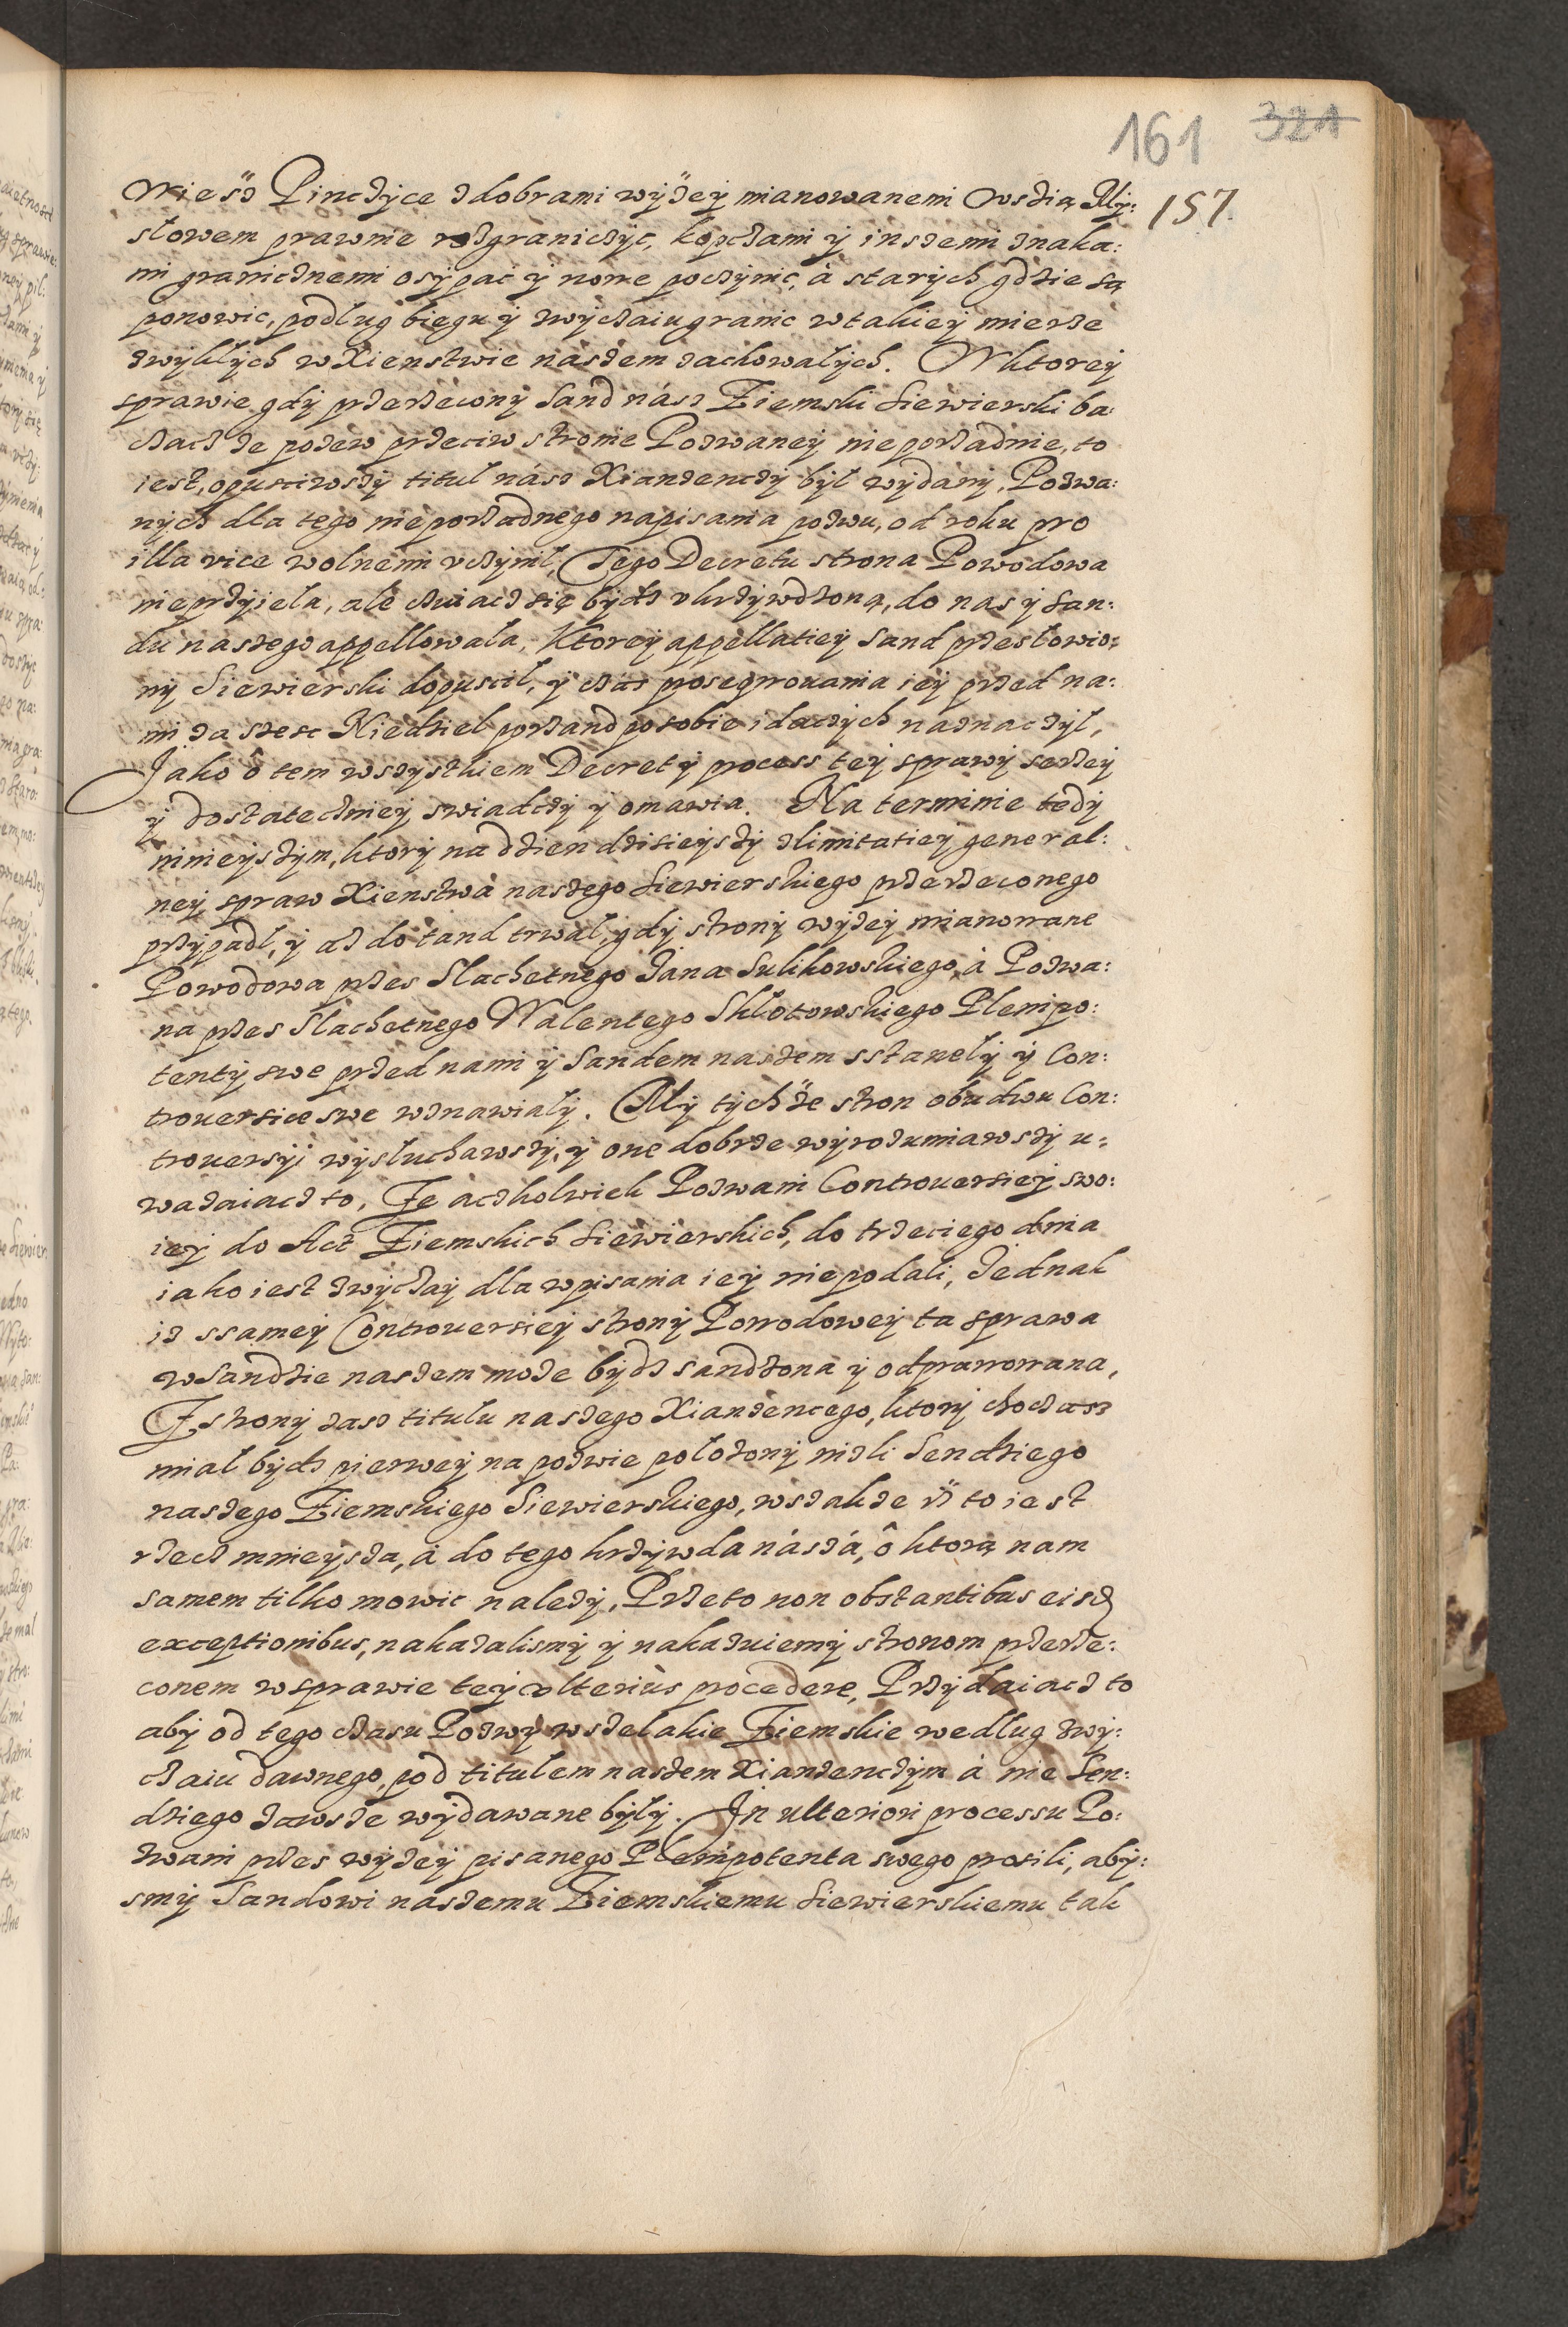 161 321
157.
Wieśz Pinczyce z dobrami wyżey mianowanemi Wsdią My:
słowem prawnie rozgraniczyc, kopczami y inszemi znaka:
mi granicznemi osypac y nowe poczynic, à starych gdzie są
ponowic, podlug biegu y zwyczaiu granic w takiey mierze
zwykłych w Xienstwie nászem zachowałych. W ktorey
sprawie gdy przerzeczony Sand nász Ziemski Siewierski ba:
cząc ze pozew przeciw stronie Pozwaney nieporządnie, to
iest, opusciwszy titul nász Xianzenczy był wydany, Pozwa:
nych dla tego nieporządnego napisania pozwu, od roku pro
illa vice wolnemi vczynil, Tego Decretu strona Powodowa
nieprzyięla, ale czuiacz się bydz vkrzywdzoną, do nas y San:
du naszego appellowała, Ktorey appellatiey Sand przesłowio:
ny Siewierski dopuscil, y czas prosequowania iey przed na:
mi za szesc Niedziel porzand po sobie idaczych naznaczyl,
Jako ô tem wszystkiem Decret y process tey sprawy szerzey
y dostateczniey swiadczy y omawia. Na terminie tedy
ninieyszym, ktory na dzien dzisieyszy zlimitatiey general:
ney spraw Xienstwa naszego Siewierskiego przerzeconego
przypadl, y aż do tand trwal, gdy strony wyżey mianowane
Powodowa przes Slachetnego Jana Sulikowskiego, à Pozwa:
na przes Slachetnego Walentego Skłotowskiego Plenipo:
tenty swe przed nami y Sandem naszem sstaneły y Con:
trouersice swe wznawiały. My tychże stron obudwu Con:
trouersyi wysłuchawszy, y one dobrze wyrozumiawszy u:
wazaiacz to, Ze aczkolwiek Pozwani Controuersiey swo:
iey do Act Ziemskich Siewierskich, do trzeciego dnia
iako iest zwyczay dla wpisania iey niepodali, Jednak
iz ssamey Controuersiey strony Powodowey ta sprawa
w Sandzie naszem może bydz sandzona y odprawowana,
Z strony zasz titulu naszego Xianzencego, ktory choczasz
mial bydz pierwey na pozwie położony nizli Sendziego
naszego Ziemskiego Siewierskiego, wszakze iż to iest
rzecz mnieysza, à do tego krzywda nászá, ô ktorą nam
samem tilko mowic nalezy, Przeto non obstantibus eisd
exceptionibus, nakazalismy y nakazuiemy stronom przerze:
conem w sprawie tey vlterius procedere, Przydaiacz to
aby od tego czasu Pozwy wszelakie Ziemskie wedlug zwy:
czaiu dawnego, pod titulem naszem Xianzenczym à nie Sen:
dziego zawsze wydawane były. In ulteriori processu Po:
zwani przes wyżey pisanego Plenipotenta swego prosili, aby:
smy Sandowi naszemu Ziemskiemu Siewierskiemu tak